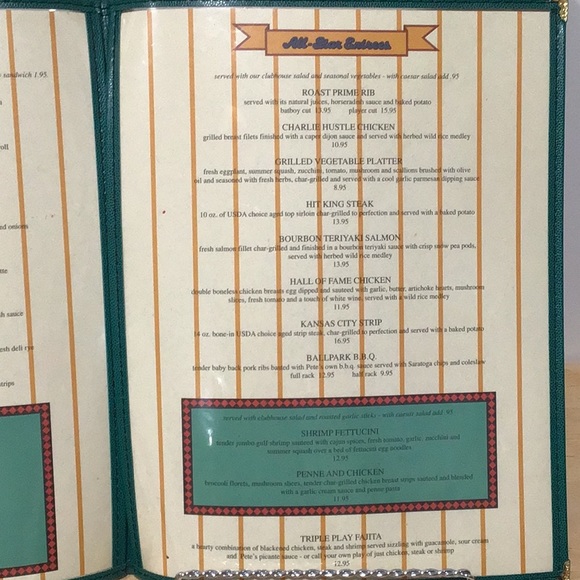 sandwich 1.95
oll
ed onions
tte
h sauce
esh deli rye
strips
All-Star Entrees
served with our clubhouse salad and seasonal vegetables - with caesar salad add .95
ROAST PRIME RIB
served with its natural juices, horseradish sauce and baked potato
batboy cut 13.95 player cut 15.95
CHARLIE HUSTLE CHICKEN
grilled breast filets finished with a caper dijon sauce and served with herbed wild rice medley
10.95
GRILLED VEGETABLE PLATTER
fresh eggplant, summer squash, zucchini, tomato, mushroom and scallions brushed with olive
oil and seasoned with fresh herbs, char-grilled and served with a cool garlic parmesan dipping sauce
8.95
HIT KING STEAK
10 oz. of USDA choice aged top sirloin char-grilled to perfection and served with a baked potato
13.95
BOURBON TERIYAKI SALMON
fresh salmon fillet char-grilled and finished in a bourbon teriyaki sauce with crisp snow pea pods,
served with herbed wild rice medley
13.95
HALL OF FAME CHICKEN
double boneless chicken breasts egg dipped and sauteed with garlic, butter, artichoke hearts, mushroom
slices, fresh tomato and a touch of white wine, served with wild rice medley
11.95
KANSAS CITY STRIP
14 oz. bone-in USDA choice aged strip steak, char-grilled to perfection and served with a baked potato
16.95
BALLPARK B.B.Q.
tender baby back pork ribs basted with Pete's own b.b.q. sauce served with Saratoga chips and coleslaw
full rack 12.95 half rack 9.95
served with clubhouse salad and roasted garlic sticks - with caesar salad add .95
SHRIMP FETTUCINI
tender jumbo gulf shrimp sauteed with cajun spices, fresh tomato, garlic, zucchini and
summer squash over a bed of fettucini egg noodles
12.95
PENNE AND CHICKEN
broccoli florets, mushroom slices, tender char-grilled chicken breast strips sauteed and blended
with a garlic cream sauce and penne pasta
11.95
TRIPLE PLAY FAJITA
a hearty combination of blackened chicken, steak and shrimp served sizzling with guacamole, sour cream
and Pete's picante sauce - or call your own play of just chicken, steak or shrimp
12.95